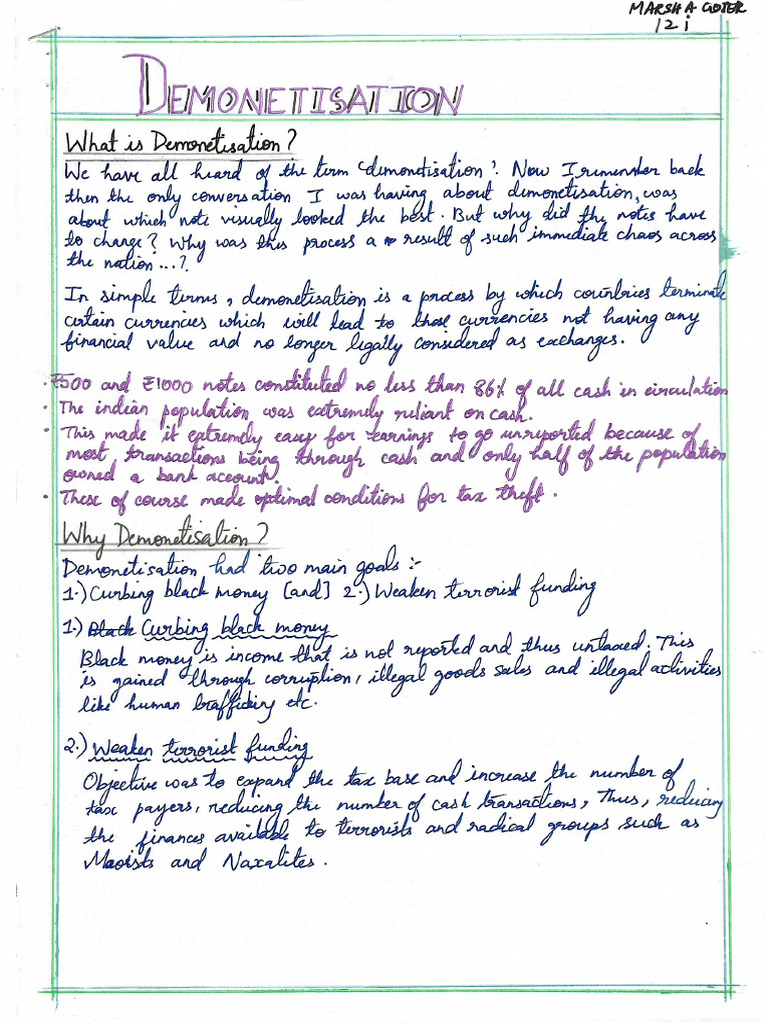 MARSHA
12 i
DEMONETISATION
What is Demonetisation?
We have all heard of the term 'demonetisation'. Now I remember back
then the only conversation I was having about demonetisation, was
about which note visually looked the best. But why did the notes have
to change? Why was this process a result of such immediate chaos across
the nation...?
In simple terms, demonetisation is a process by which countries terminate
certain currencies which will lead to those currencies not having any
financial value and no longer legally considered as exchanges.
· ₹500 and ₹1000 notes constituted no less than 86% of all cash in circulation
· The indian population was extremely reliant on cash.
· This made it extremely easy for earnings to go unreported because of
most transactions being through cash and only half of the population
owned a bank account.
· These of course made optimal conditions for tax theft.
Why Demonetisation?
Demonetisation had two main goals :-
1.) Curbing black money [and] 2.) Weaken terrorist funding
1.) Black Curbing black money
Black money is income that is not reported and thus untaxed. This
is gained through corruption, illegal goods sales and illegal activities
like human trafficking etc.
2.) Weaken terrorist funding
Objective was to expand the tax base and increase the number of
tax payers, reducing the number of cash transactions, Thus, reducing
the finances available to terrorists and radical groups such as
Maoists and Naxalites.